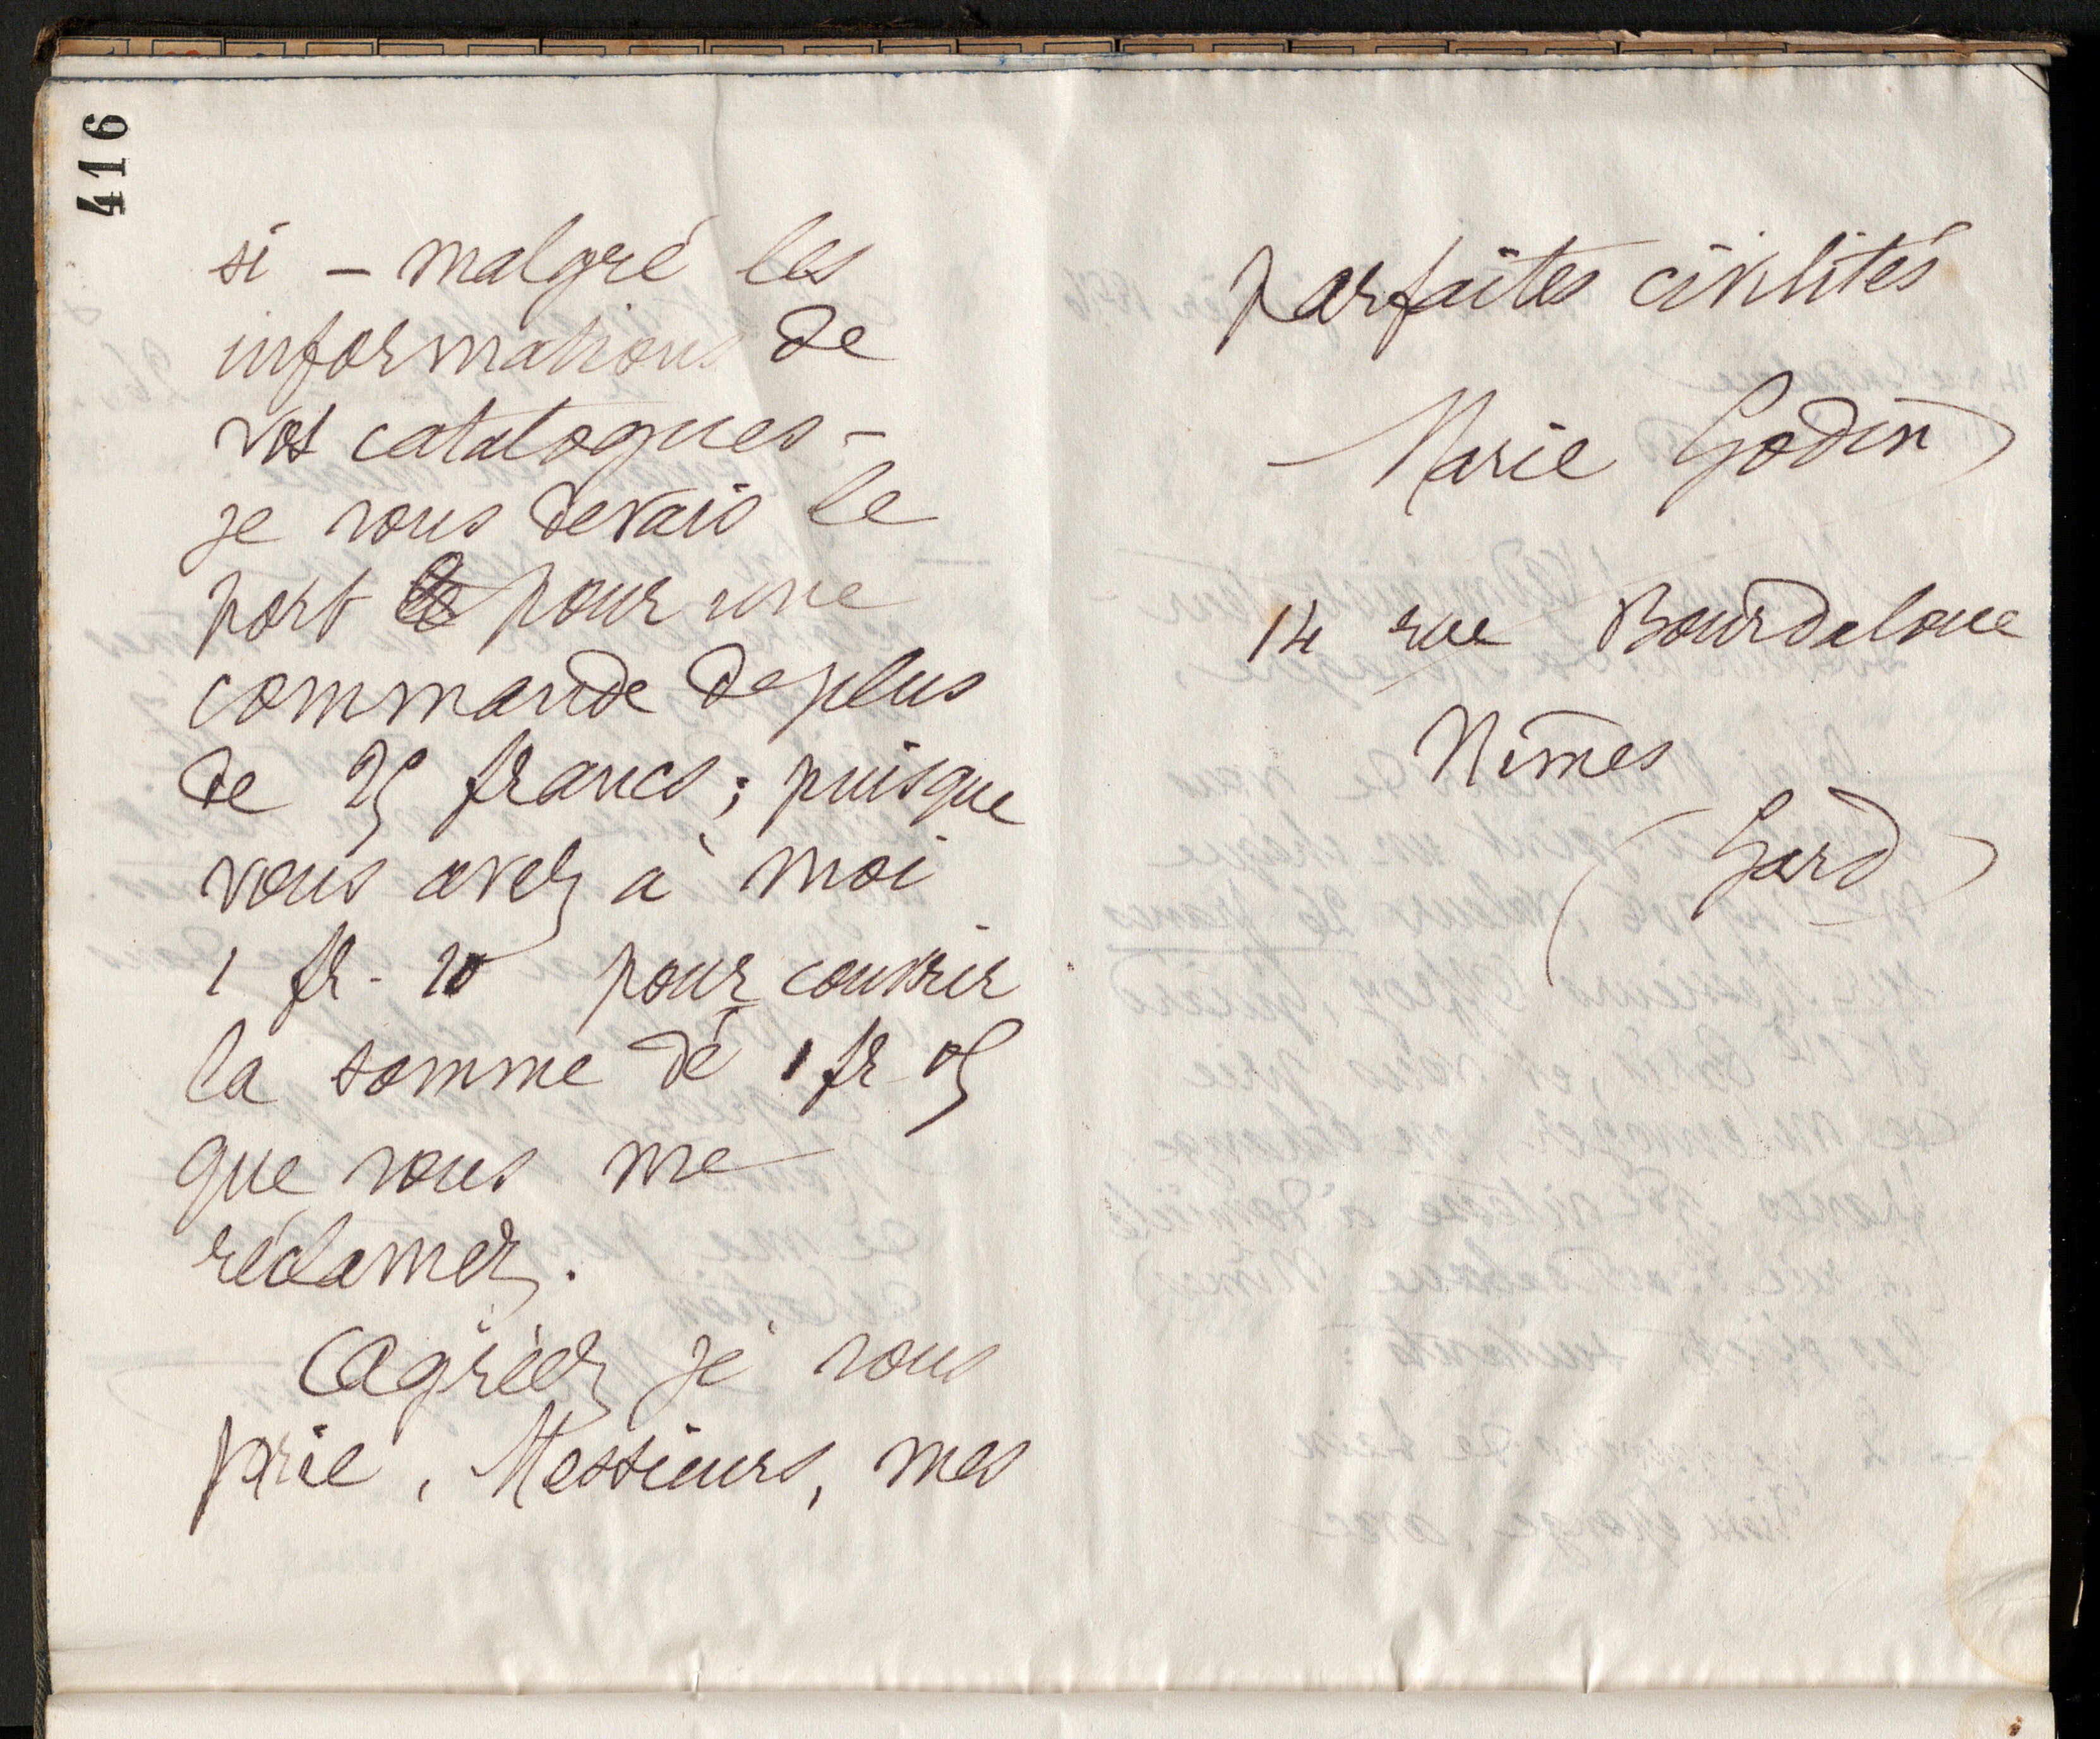 416
si – malgré les
informations de
vos catalogues –
je vous devais le
port pour une
commande de plus
de 25 francs ; puisque
vous avez à moi
1 fr. 10 pour couvrir
la somme de 1 fr 05
que vous me
réclamez.
Agréez je vous
prie, Messieurs, mes
parfaites civilités
Marie Godin
14 rue Bourdaloue
Nîmes
(Gard)